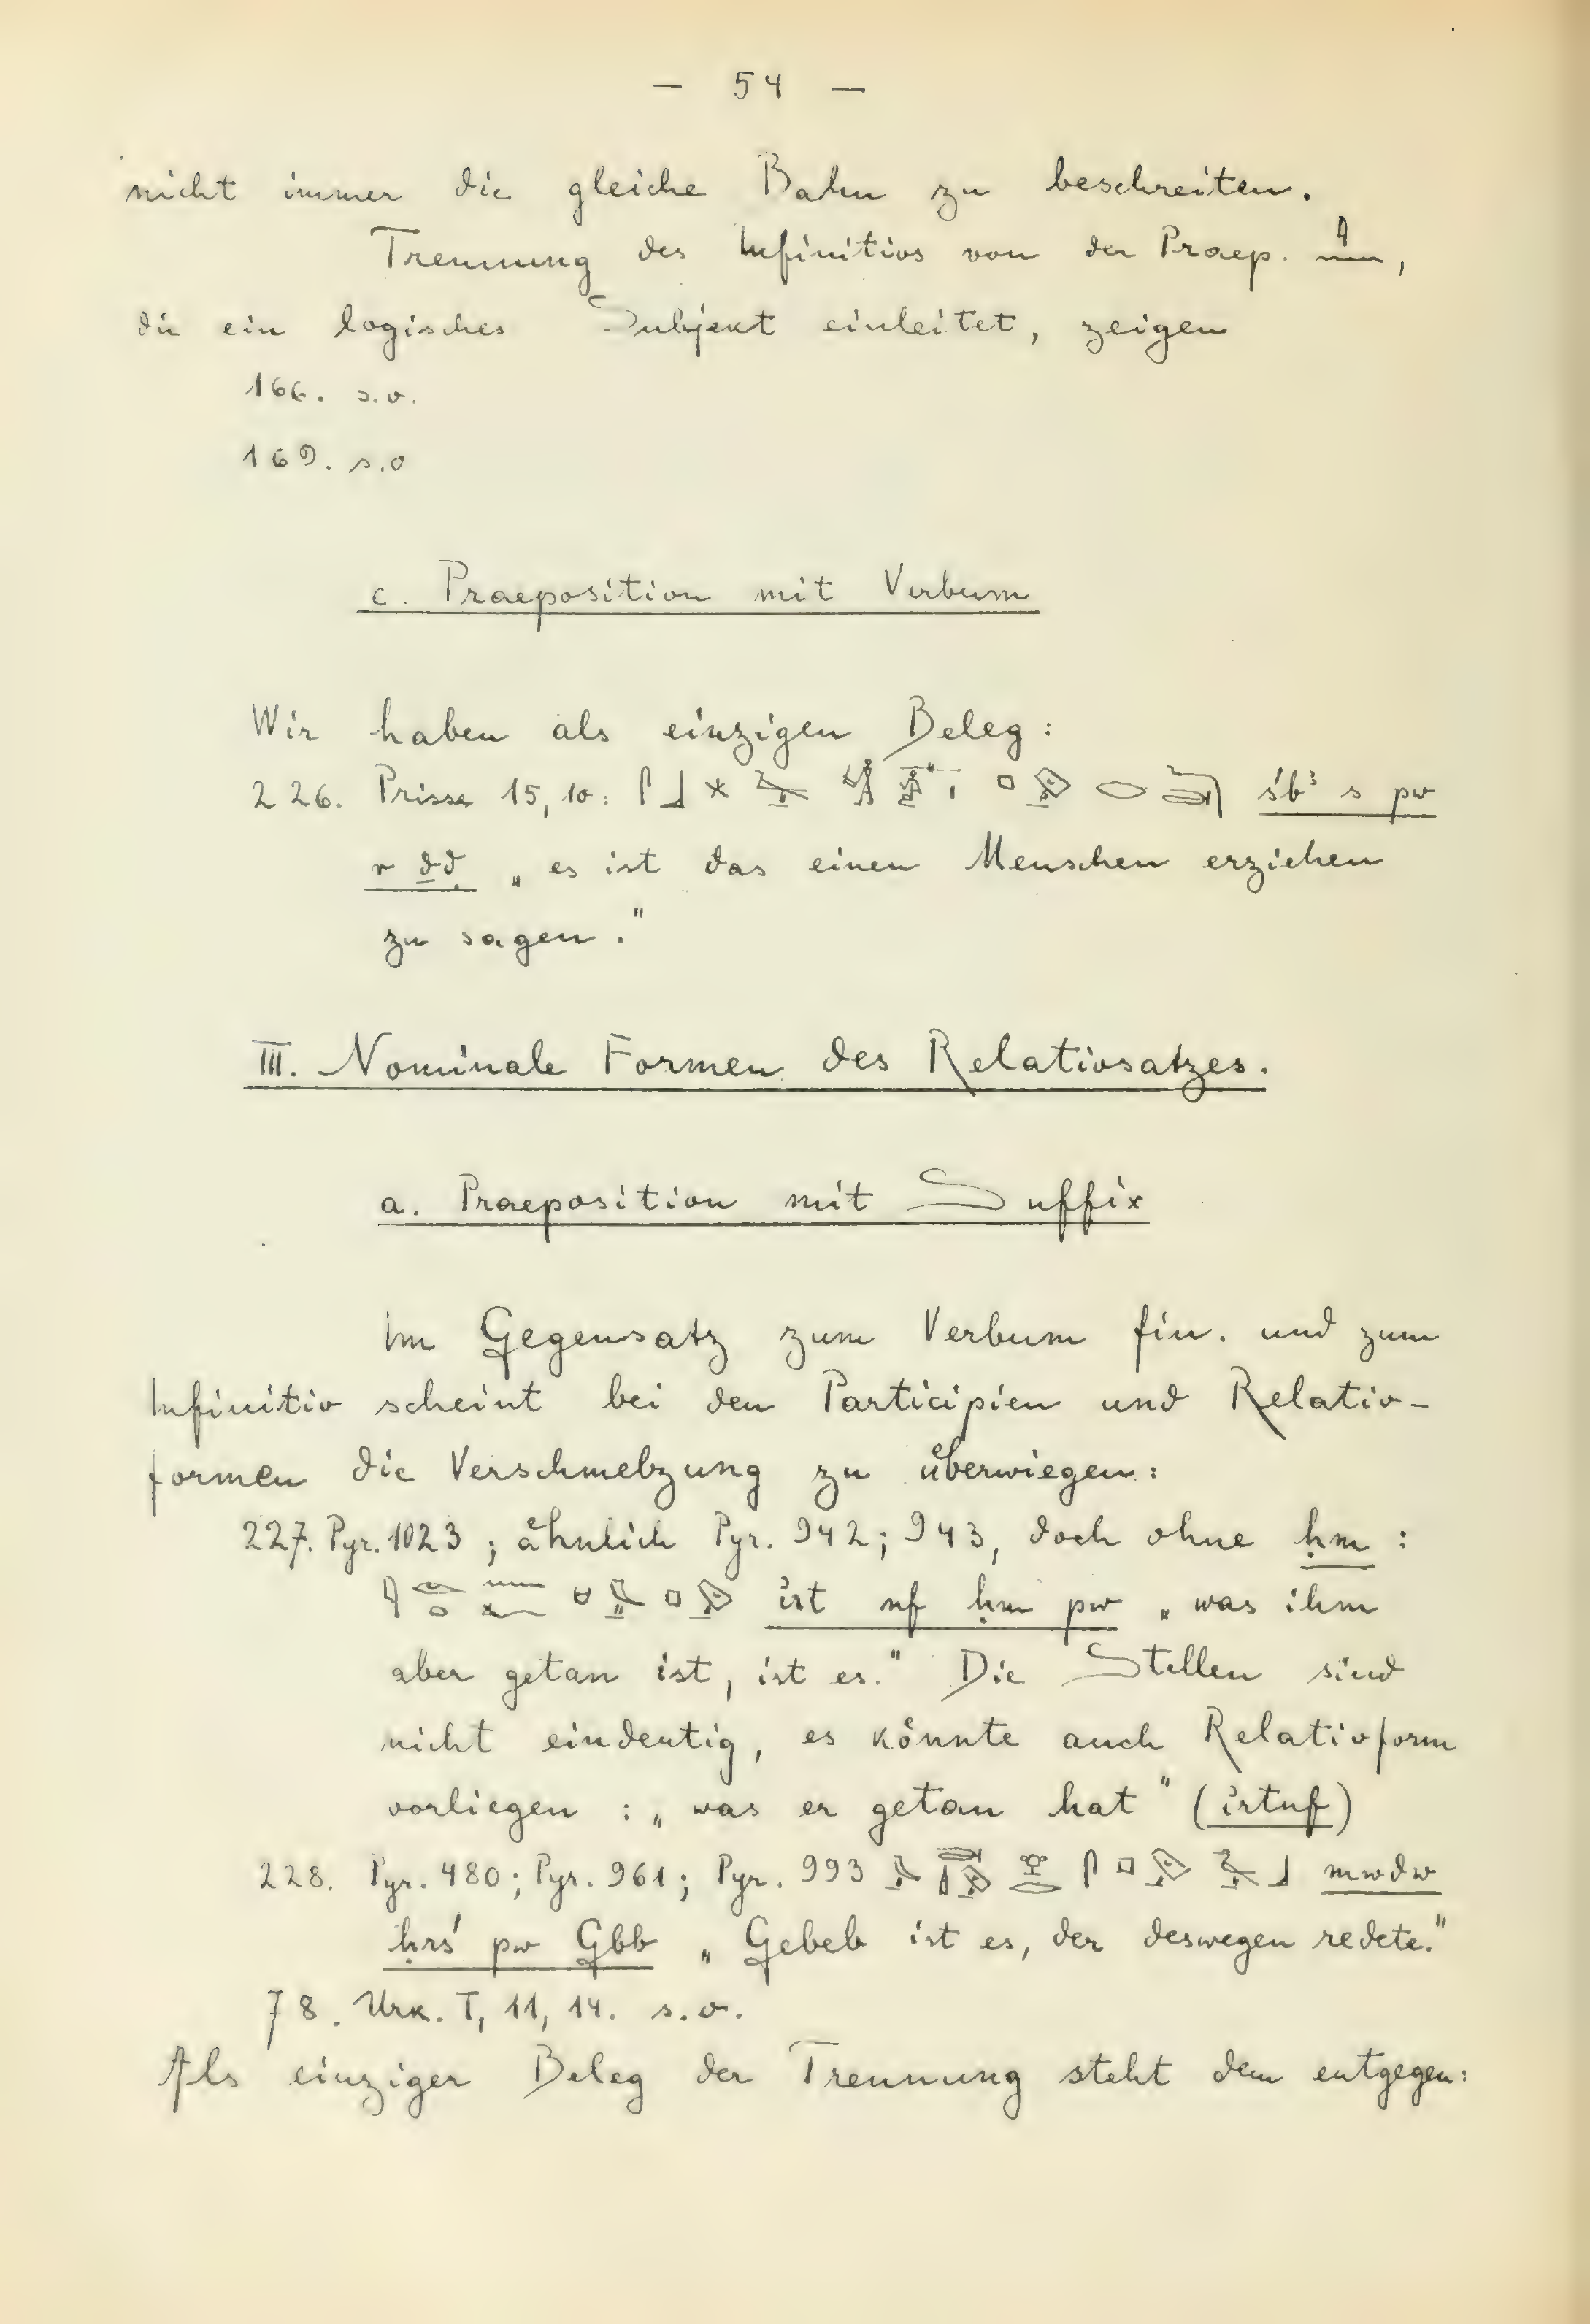 — 54 —
nicht immer die gleiche Bahn zu beschreiten.
Trennung des Infinitivs von der Praep. 𓇋𓈖,
die ein logisches Subjekt einleitet, zeigen
166. s.o.
169. s.o
c. Praeposition mit Verbum
Wir haben als einzigen Beleg:
226. Prisse 15, 10: śbꜣ s pw
r ḏd „es ist das einen Menschen erziehen
zu sagen."
III. Nominale Formen des Relativsatzes.
a. Praeposition mit Suffix
Im Gegensatz zum Verbum fin. und zum
Infinitiv scheint bei den Participien und Relativ-
formen die Verschmelzung zu überwiegen:
227. Pyr. 1023; ähnlich Pyr. 942; 943, doch ohne ḥm :
irt nf ḥm pw „was ihm
aber getan ist, ist es." Die Stellen sind
nicht eindeutig, es könnte auch Relativform
vorliegen : „was er getan hat" (irtnf)
228. Pyr. 480; Pyr. 961; Pyr. 993 mwdw
ḥrś pw Gbb „Gebeb ist es, der deswegen redete."
78. Urk. I, 11, 14. s.o.
Als einziger Beleg der Trennung steht dem entgegen: